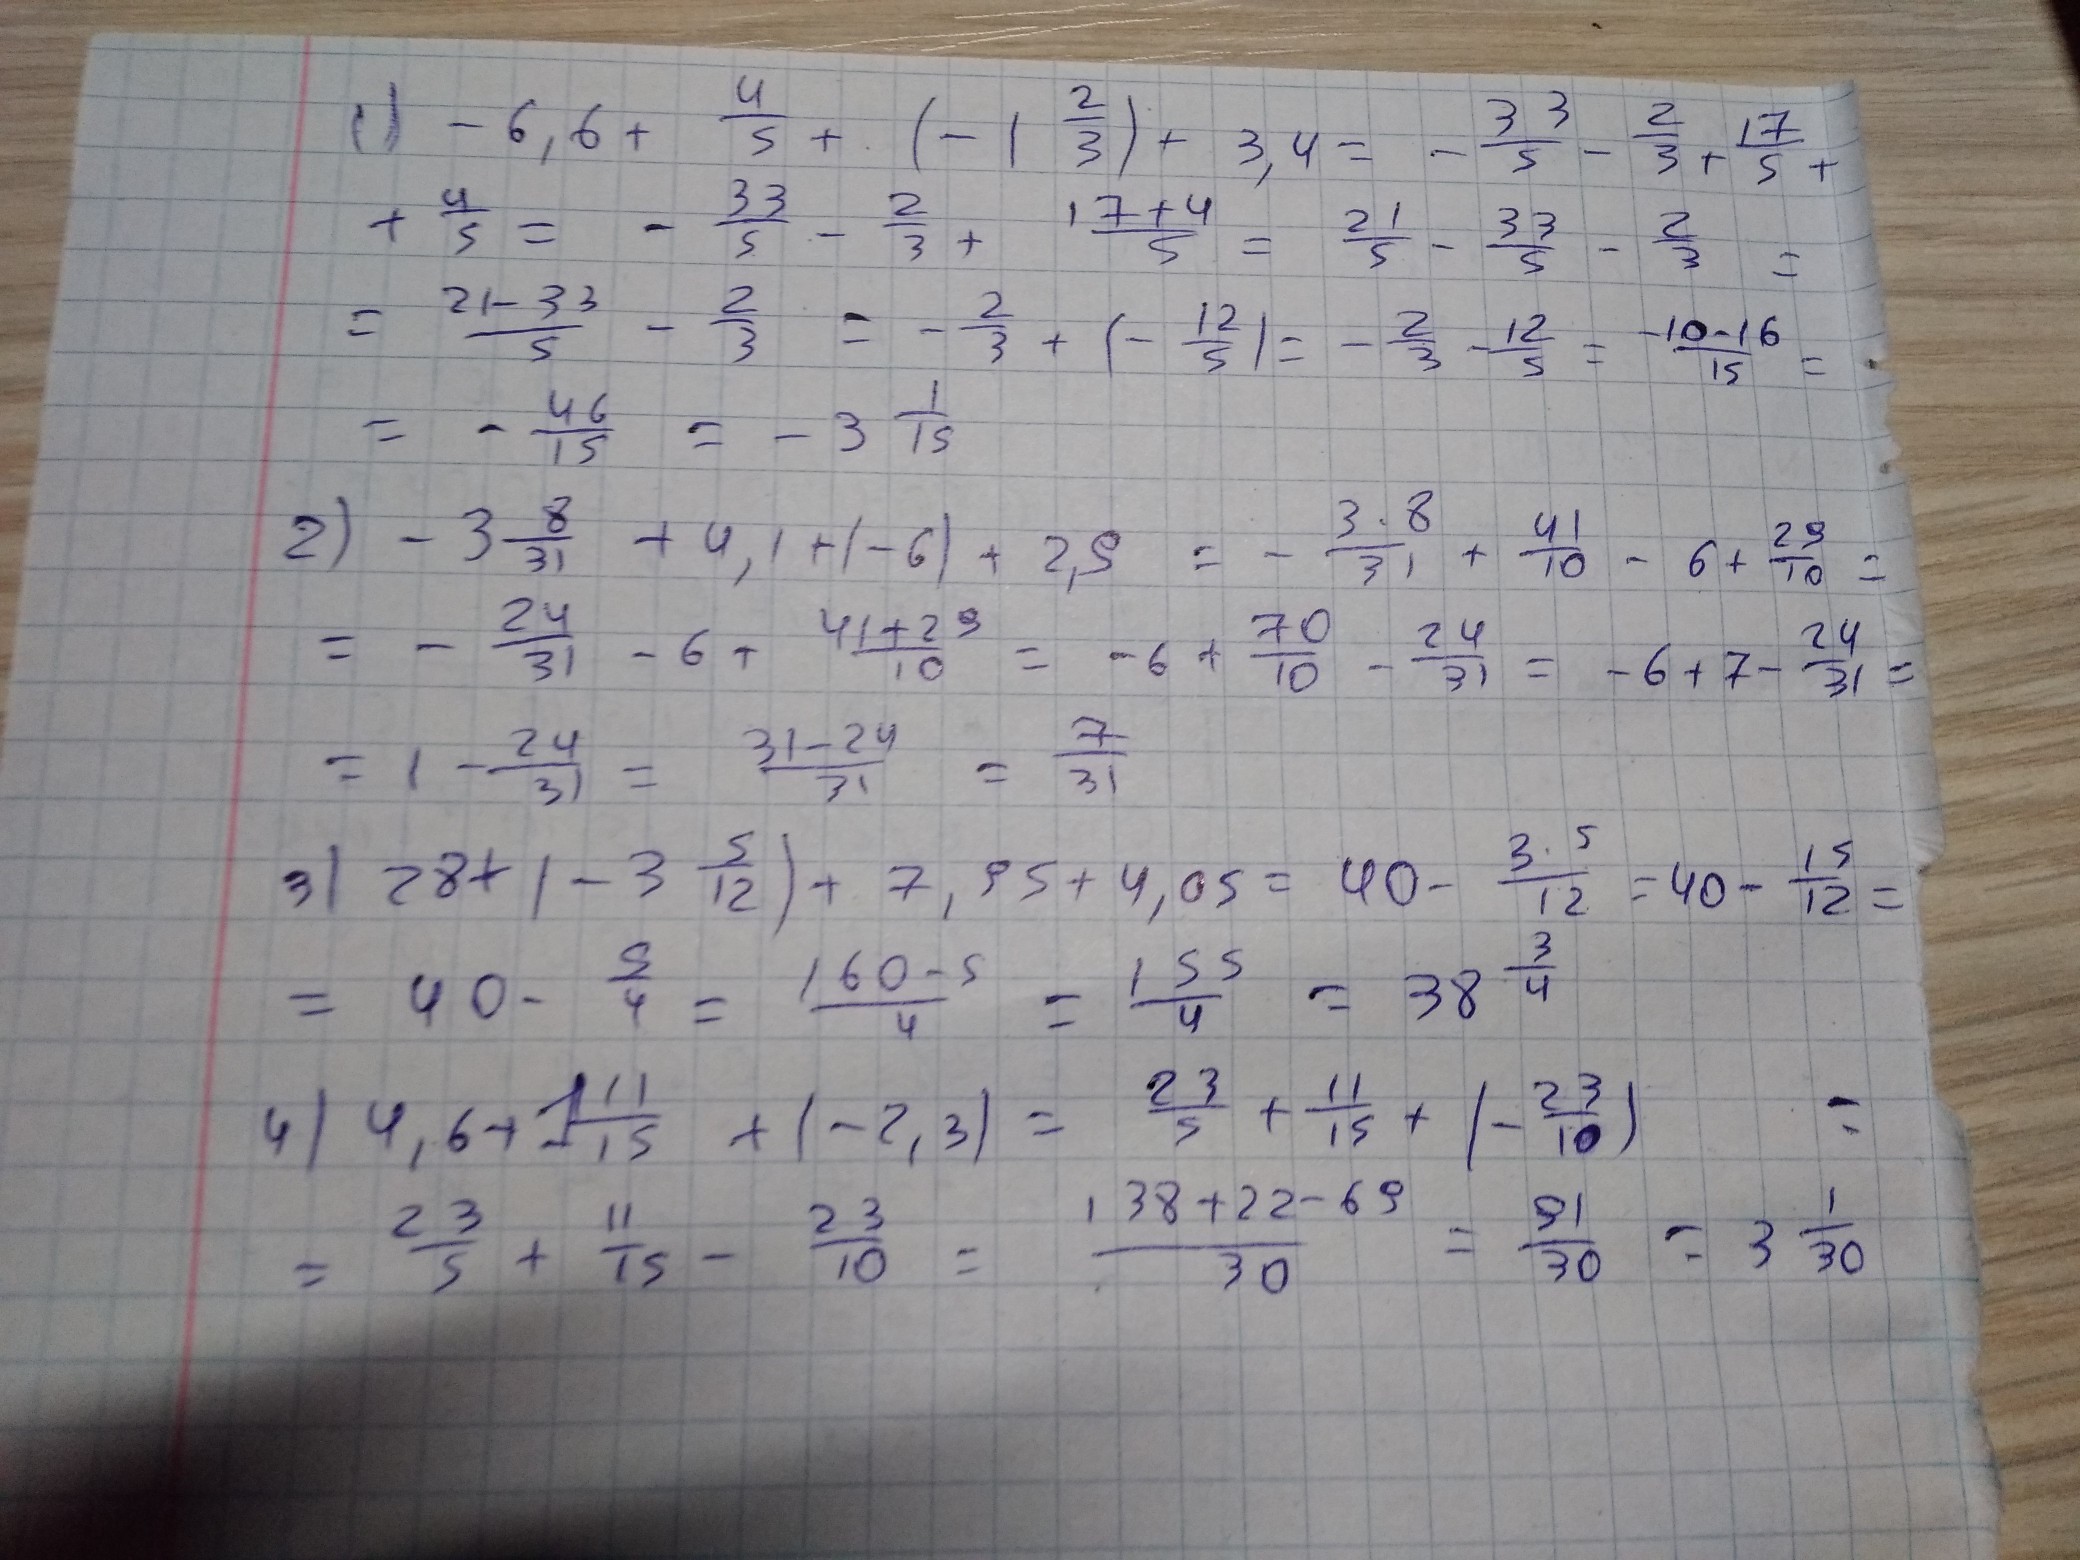 1) - 6,6 + 4/5 + (- 1 2/3) + 3,4 = - 33/5 - 2/3 + 17/5 +
+ 4/5 = - 33/5 - 2/3 + (17+4)/5 = 21/5 - 33/5 - 2/3 =
= (21-33)/5 - 2/3 = - 2/3 + (- 12/5) = - 2/3 - 12/5 = (-10-16)/15 =
= - 46/15 = - 3 1/15
2) - 3 8/31 + 4,1 + (-6) + 2,9 = - (3·8)/31 + 41/10 - 6 + 29/10 =
= - 24/31 - 6 + (41+29)/10 = -6 + 70/10 - 24/31 = -6+7- 24/31 =
= 1 - 24/31 = (31-24)/31 = 7/31
3) 28+(-3 5/12) + 7,95+4,05 = 40 - (3·5)/12 = 40 - 15/12 =
= 40 - 5/4 = (160-5)/4 = 155/4 = 38 3/4
4) 4,6 + 1 11/15 + (-2,3) = 23/5 + 11/15 + (- 23/10) =
= 23/5 + 11/15 - 23/10 = (138+22-69)/30 = 91/30 = 3 1/30